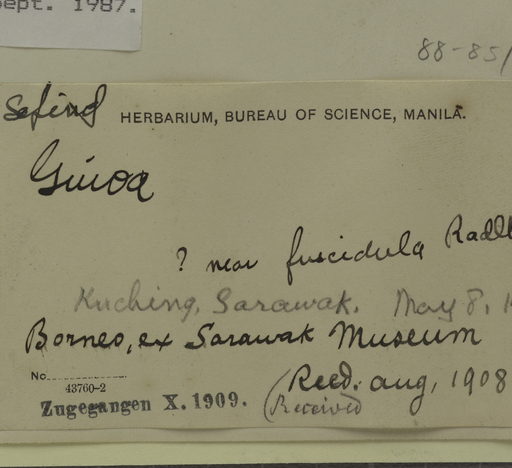 Sept. 1987.
88-85/
HERBARIUM, BUREAU OF SCIENCE, MANILA.
Guioa
? near fuscidula Radlk
Kuching, Sarawak. May 8, 1
Borneo, ex Sarawak Museum
No.
43760-2
Recd. Aug, 1908
Zugegangen X. 1909.
(Received